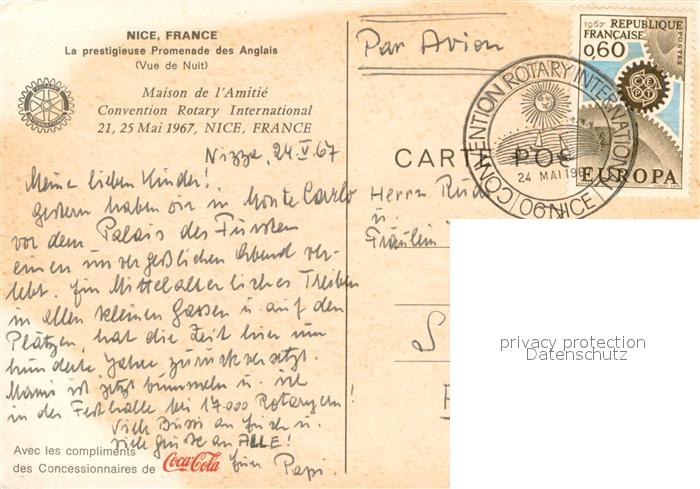 NICE, FRANCE
La prestigieuse Promenade des Anglais
(Vue de Nuit)
Maison de l'Amitié
Convention Rotary International
21, 25 Mai 1967, NICE, FRANCE
Par Avion
1967 REPUBLIQUE
FRANÇAISE
0,60
POSTES
CEPT
EUROPA
CONVENTION ROTARY INTERNATIONAL
24 MAI 196
06 NICE
CARTE POS
Nizza, 24.V.67
Meine lieben Kinder!
Gestern haben wir in Monte Carlo
vor dem Palais des Fürsten
einen unvergeßlichen Abend ver-
lebt. Ein Mittelalterliches Treiben
in allen kleinen Gassen u. auf den
Plätzen, hat die Zeit hier um
hunderte Jahre zurückversetzt.
Mami ist jetzt bummeln u. ich
in der Festhalle bei 17.000 Rotaryern!
Viele Bussi an Euch u.
viele Grüße an ALLE!
Euer Papi.
Herrn
u.
Fräulein
S
Avec les compliments
des Concessionnaires de Coca-Cola
privacy protection
Datenschutz